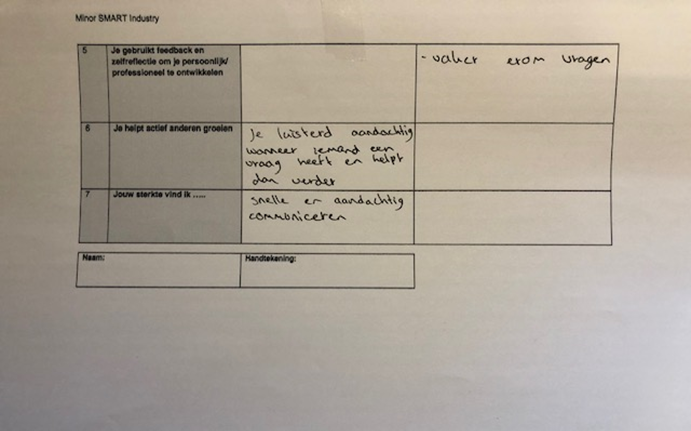 Minor SMART Industry
5 Je gebruikt feedback en
zelfreflectie om je persoonlijk/
professioneel te ontwikkelen
- vaker erom vragen
6 Je helpt actief anderen groeien
Je luisterd aandachtig
wanneer iemand een
vraag heeft en helpt
dan verder
7 Jouw sterkte vind ik .....
snelle en aandachtig
communiceren
Naam: Handtekening: